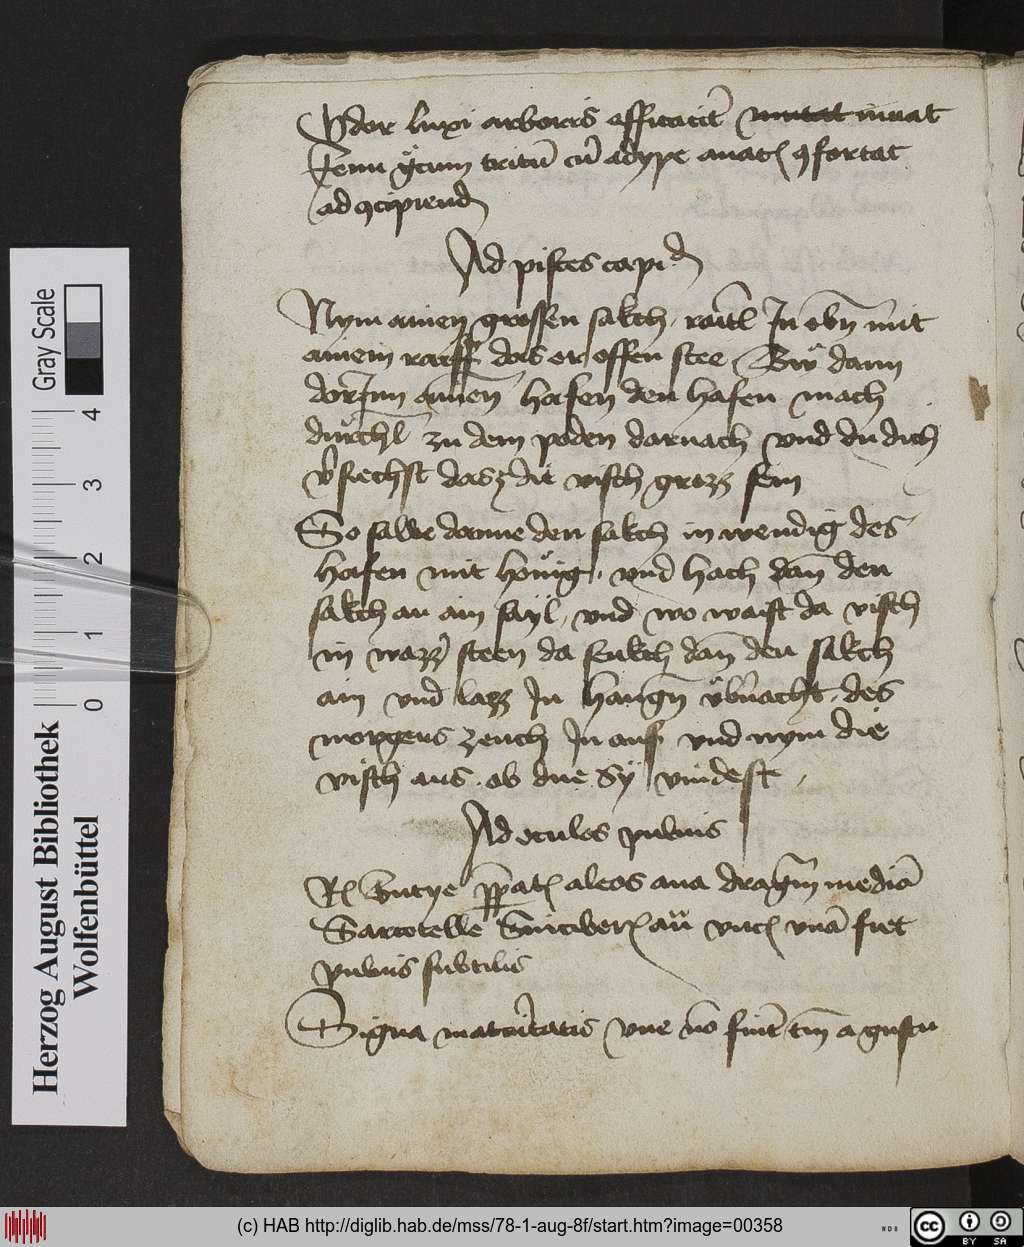 Odor luxi arboris efficacit̄ mutat iuuat
Fenu gͦcum tritū cū adype anat⁊ ꝯfortat
ad ꝯcipiend
Ad pisces capid
Nym ainen grossen sakch, raitl In obn̄ mit
ainem raeff das er offen stee
dorJnn ainen hafen den hafen mach
durchl zu dem poden darnach vnd du dich
v̄siechst das die visch grozz sein
So salbe danne den sakch in wendig des
hafen mit honig, vnd hach dan̄ den
sakch an ain sayl, vnd wo waist da visch
in wazz̄ steen da senkch dan̄ den sakch
ain vnd lazz In hangn̄ vb̄nacht, des
morgens zeuch In auf vnd nym die
visch aus, ob due sy vindest
Ad oculos puluis
R⁊ Tutye p̄pat⁊ aleos ana dragm̄ mediā
Sarcocelle vnc⁊ vnā fiet
puluis subtilis
Signa maturitatis vue nō sunt tm̄ a gustu
Gray Scale
4
3
2
1
0
Herzog August Bibliothek
Wolfenbüttel
(c) HAB http://diglib.hab.de/mss/78-1-aug-8f/start.htm?image=00358
cc BY SA